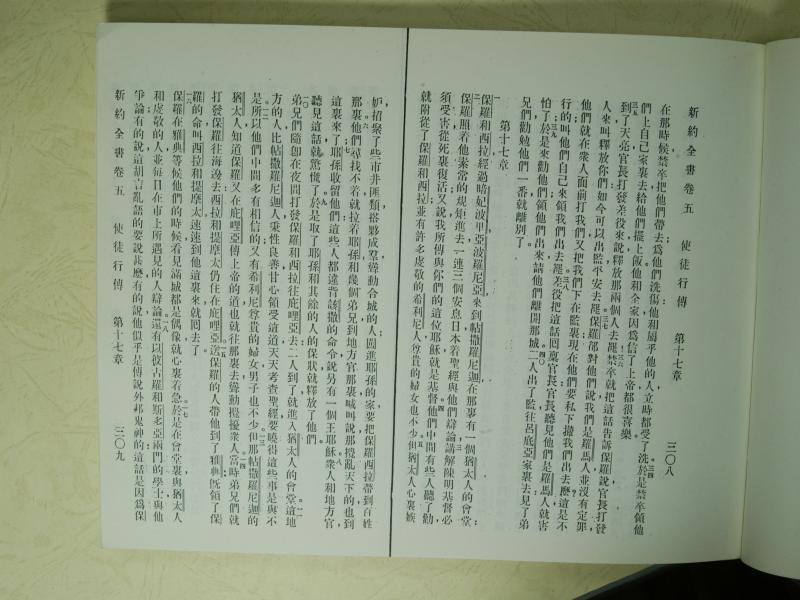 新約全書卷五 使徒行傳 第十七章 三〇八
在那時候禁卒把他們帶去爲他們洗傷他和屬乎他的人立時都受了洗於是禁卒領他
們上自己家裏去給他們擺上飯他和全家因爲信了上帝都很喜樂
到了天亮官長打發差役來說釋放那兩個人去罷禁卒就把這話告訴保羅說官長打發
人來叫釋放你們如今可以出監平安去罷保羅卻對他們說我們是羅馬人並沒有定罪
他們就在衆人面前打我們又把我們下在監裏現在他們要私下攆我們出去麽這是不
行的叫他們自己來領我們出去罷差役把這話囘稟官長官長聽見他們是羅馬人就害
怕了於是來勸他們領他們出來請他們離開那城二人出了監往呂底亞家裏去見了弟
兄們勸勉他們一番就離別了
第十七章
保羅和西拉經過暗妃波里亞波羅尼亞來到帖撒羅尼迦在那裏有一個猶太人的會堂
保羅照着他素常的規矩進去一連三個安息日本着聖經與他們辯論講解陳明基督必
須受害從死裏復活又說我所傳與你們的這位耶穌就是基督他們中間有些人聽了勸
就附從了保羅和西拉並有許多虔敬的希利尼人尊貴的婦女也不少但猶太人心裏嫉
妒招聚了些市井匪類搭夥成羣聳動合城的人闖進耶孫的家要把保羅西拉帶到百姓
那裏他們尋找不着就拉着耶孫和幾個弟兄到地方官那裏喊叫說那攪亂天下的也到
這裏來了耶孫收留他們這些人都違背該撒的命令說另有一個王耶穌衆人和地方官
聽見這話就驚慌了於是取了耶孫和其餘的人的保狀就釋放了他們
弟兄們隨卽在夜間打發保羅和西拉往庇哩亞去二人到了就進入猶太人的會堂這地
方的人比帖撒羅尼迦人秉性良善甘心領受這道天天考查聖經要曉得這些事是與不
是所以他們中間多有相信的又有希利尼尊貴的婦女男子也不少但那帖撒羅尼迦的
猶太人知道保羅又在庇哩亞傳上帝的道也就往那裏去聳動攪擾衆人當時弟兄們就
打發保羅往海邊去西拉和提摩太仍住在庇哩亞送保羅的人帶他到了雅典旣領了保
羅的命叫西拉和提摩太速速到他這裏來就囘去了
保羅在雅典等候他們的時候看見滿城都是偶像就心裏着急於是在會堂裏與猶太人
和虔敬的人並每日在市上所遇見的人辯論還有以彼古羅和斯多亞兩門的學士與他
爭論有的說這胡言亂語的要說甚麽有的說他似乎是傳說外邦鬼神的這話是因爲保
新約全書卷五 使徒行傳 第十七章 三〇九